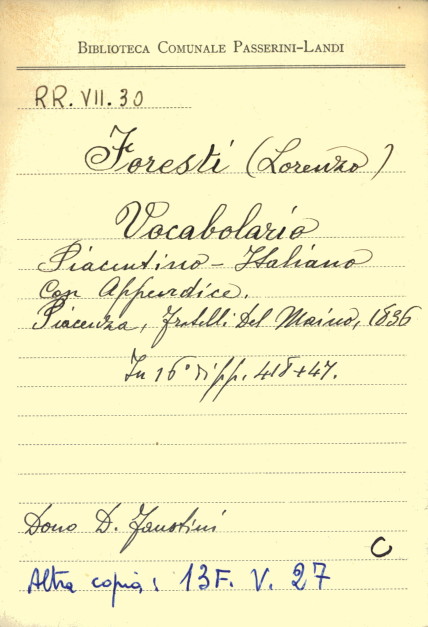 BIBLIOTECA COMUNALE PASSERINI-LANDI
RR. VII. 30
Foresti (Lorenzo)
Vocabolario
Piacentino - Italiano
Con Appendice.
Piacenza, Fratelli Del Maino, 1836
In 16° di pp. 418+47.
Dono D. Faustini
C
Altra copia: 13F. V. 27